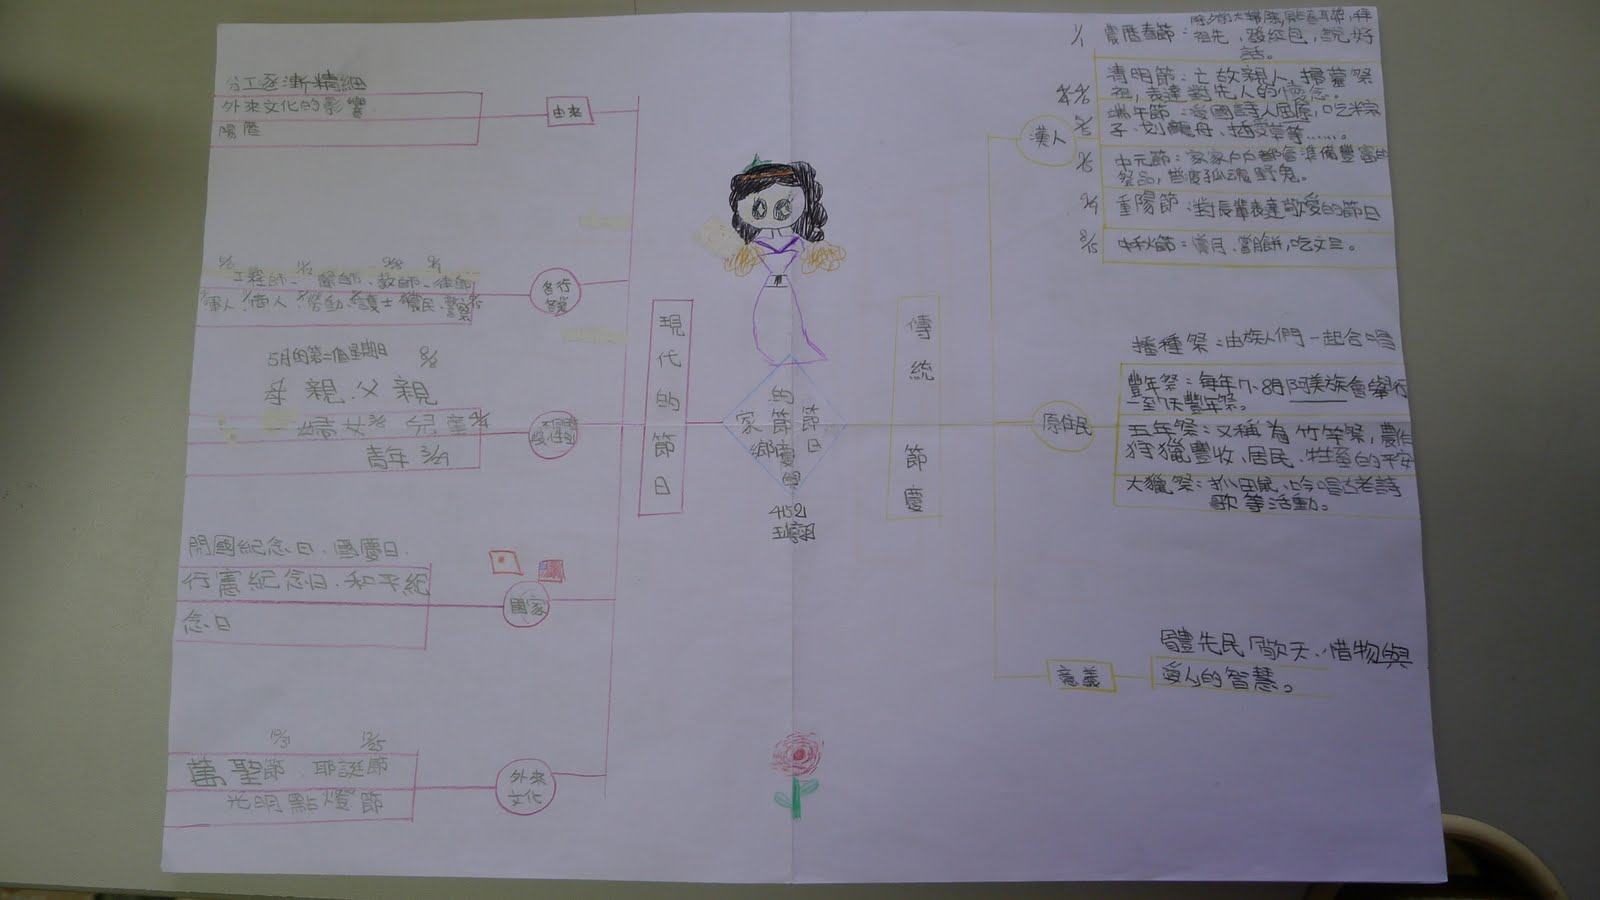 家鄉的節慶與節日
452
現代的節日
由來
分工逐漸精細
外來文化的影響
陽曆
各行各業
工程師、醫師、教師、律師
軍人、商人、勞動、護士、農民、警察
5月的第二個星期日 8/8
母親、父親
婦女 3/8 兒童 4/4
青年 3/29
國家
開國紀念日、國慶日、
行憲紀念日、和平紀
念日
外來文化
10/31 12/25
萬聖節、耶誕節
光明點燈節
傳統節慶
漢人
1/1 農曆春節:
祖先,發紅包,說好
話。
清明節:亡故親人,掃墓祭
祖,表達對先人的懷念。
端午節:愛國詩人屈原,吃粽
子、划龍舟、插艾草等……。
中元節:家家戶戶都會準備豐富的
祭品,普度孤魂野鬼。
9/9 重陽節:對長輩表達敬愛的節日
8/15 中秋節:賞月、嘗月餅,吃文旦。
原住民
播種祭:由族人們一起合唱
豐年祭:每年7、8月阿美族會舉行
一至7天豐年祭。
五年祭:又稱為竹竿祭,農作
狩獵豐收、居民、牲的平安
大獵祭:抓田鼠、吟唱古老詩
歌等活動。
意義
體先民「敬天、惜物與
愛人」的智慧。